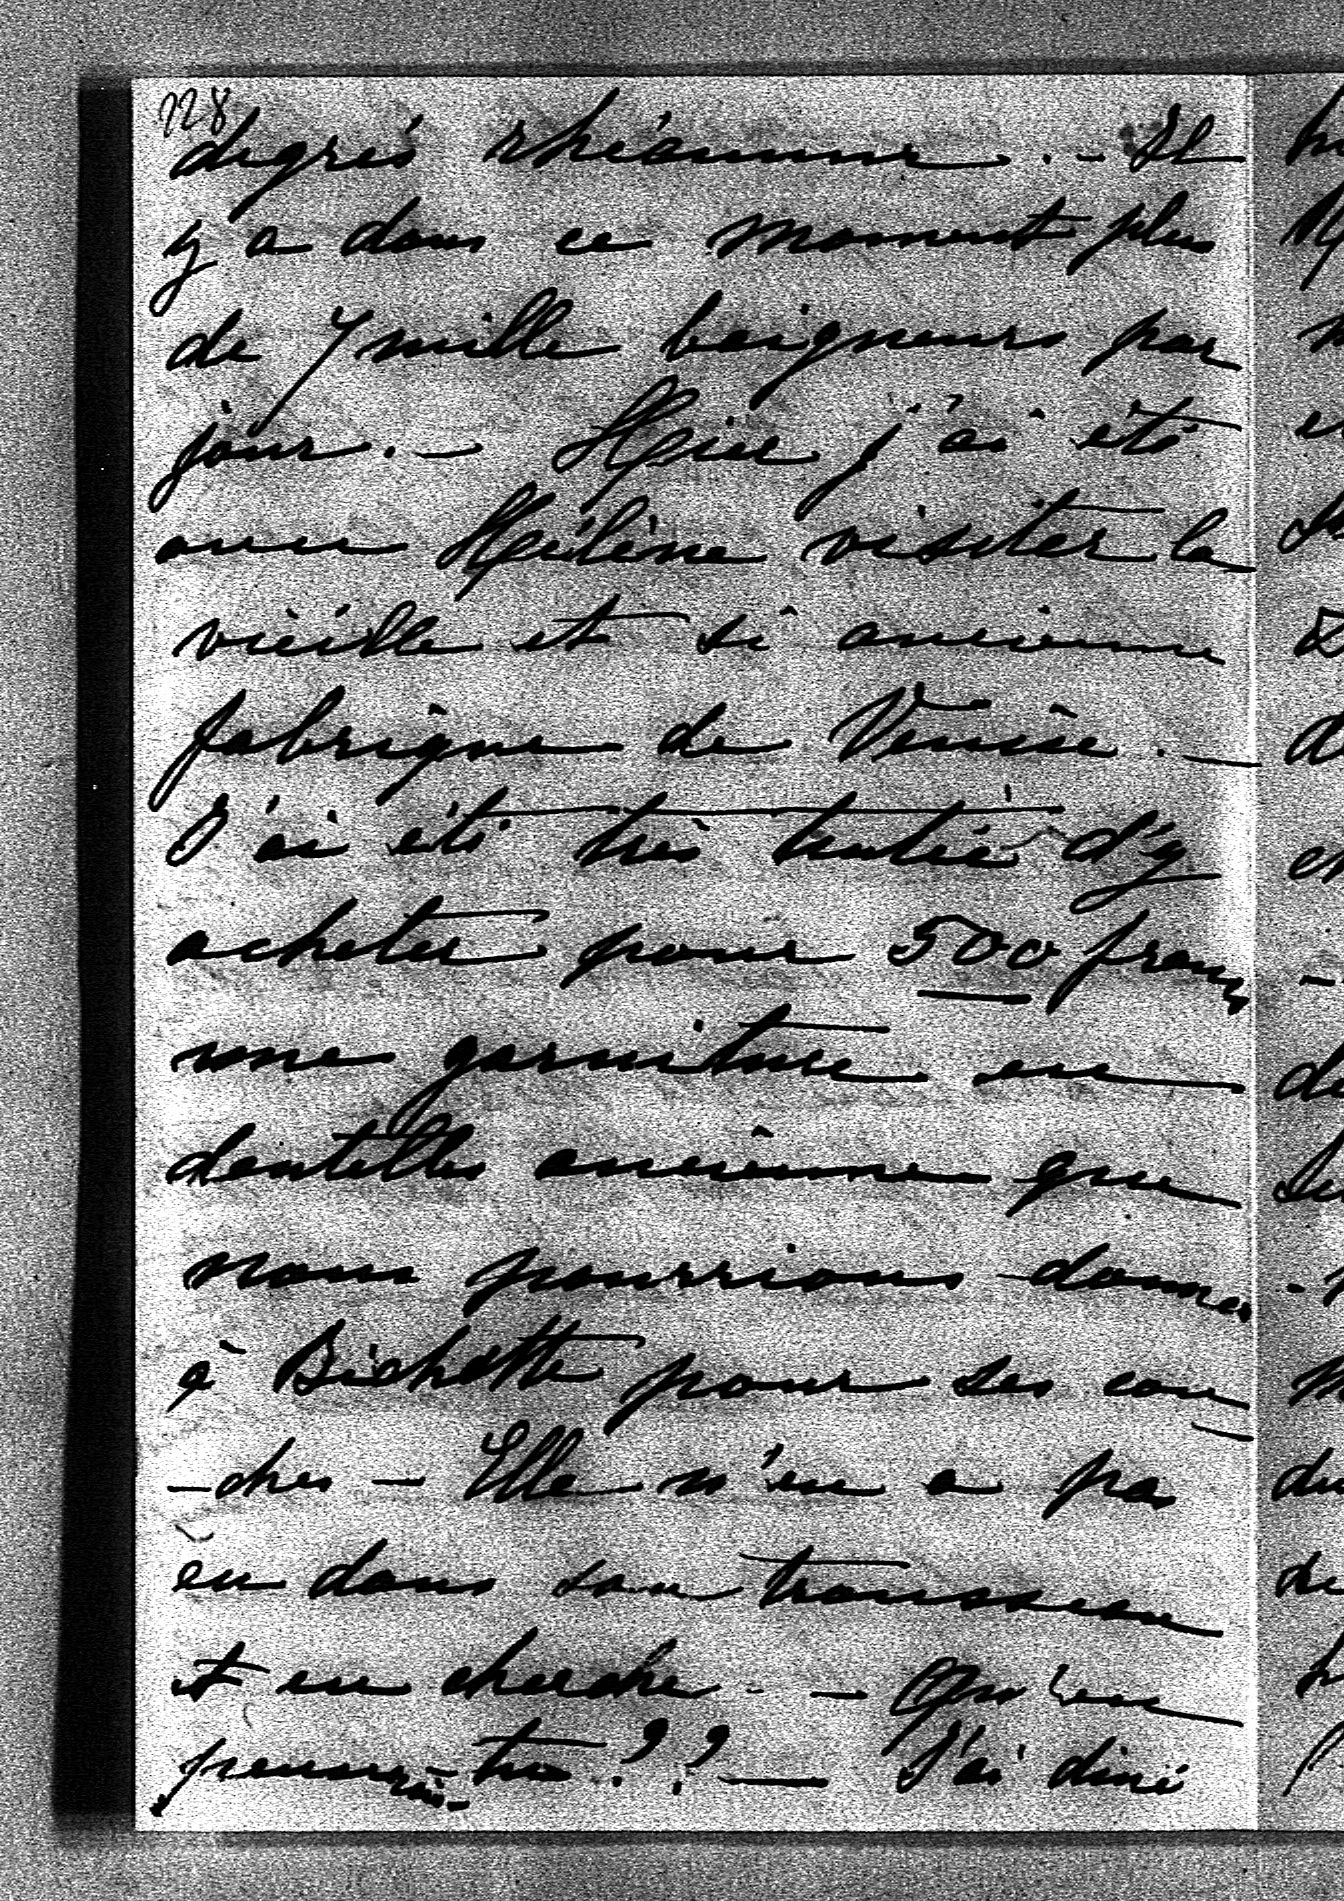 228
degrés rhéaumur. – Il
y a dans ce moment plus
de 7 mille baigneurs par
jour. – Hier j'ai été
avec Hélène visiter la
vieille et si ancienne
fabrique de Venise. –
J'ai été très tentée d'y
acheter pour 500 francs
une garniture en
dentelles ancienne que
nous pourrions donner
à Bichette pour ses cou
-ches – Elle n'en a pas
eu dans son trousseau
et en cherche – – Qu'en
penserais-tu ?? – J'ai diné